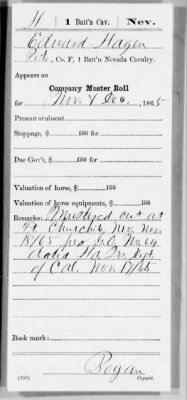 H 1 Batt'n Cav. Nev.
Edward Hagen
Pvt, Co. F, 1 Batt'n Nevada Cavalry.
Appears on
Company Muster Roll
for Nov. & Dec., 1865
Present or absent
Stoppage, $ 100 for
Due Gov't, $ 100 for
Valuation of horse, $ 100
Valuation of horse equipments, $ 100
Remarks: Mustered out at
Ft. Churchill Nev. Nov.
18/65 per S.O. No. 64
dated Hd Qrs Dept
of Cal. Nov. 17/65
Book mark:
Bogan
(358) Copyist.